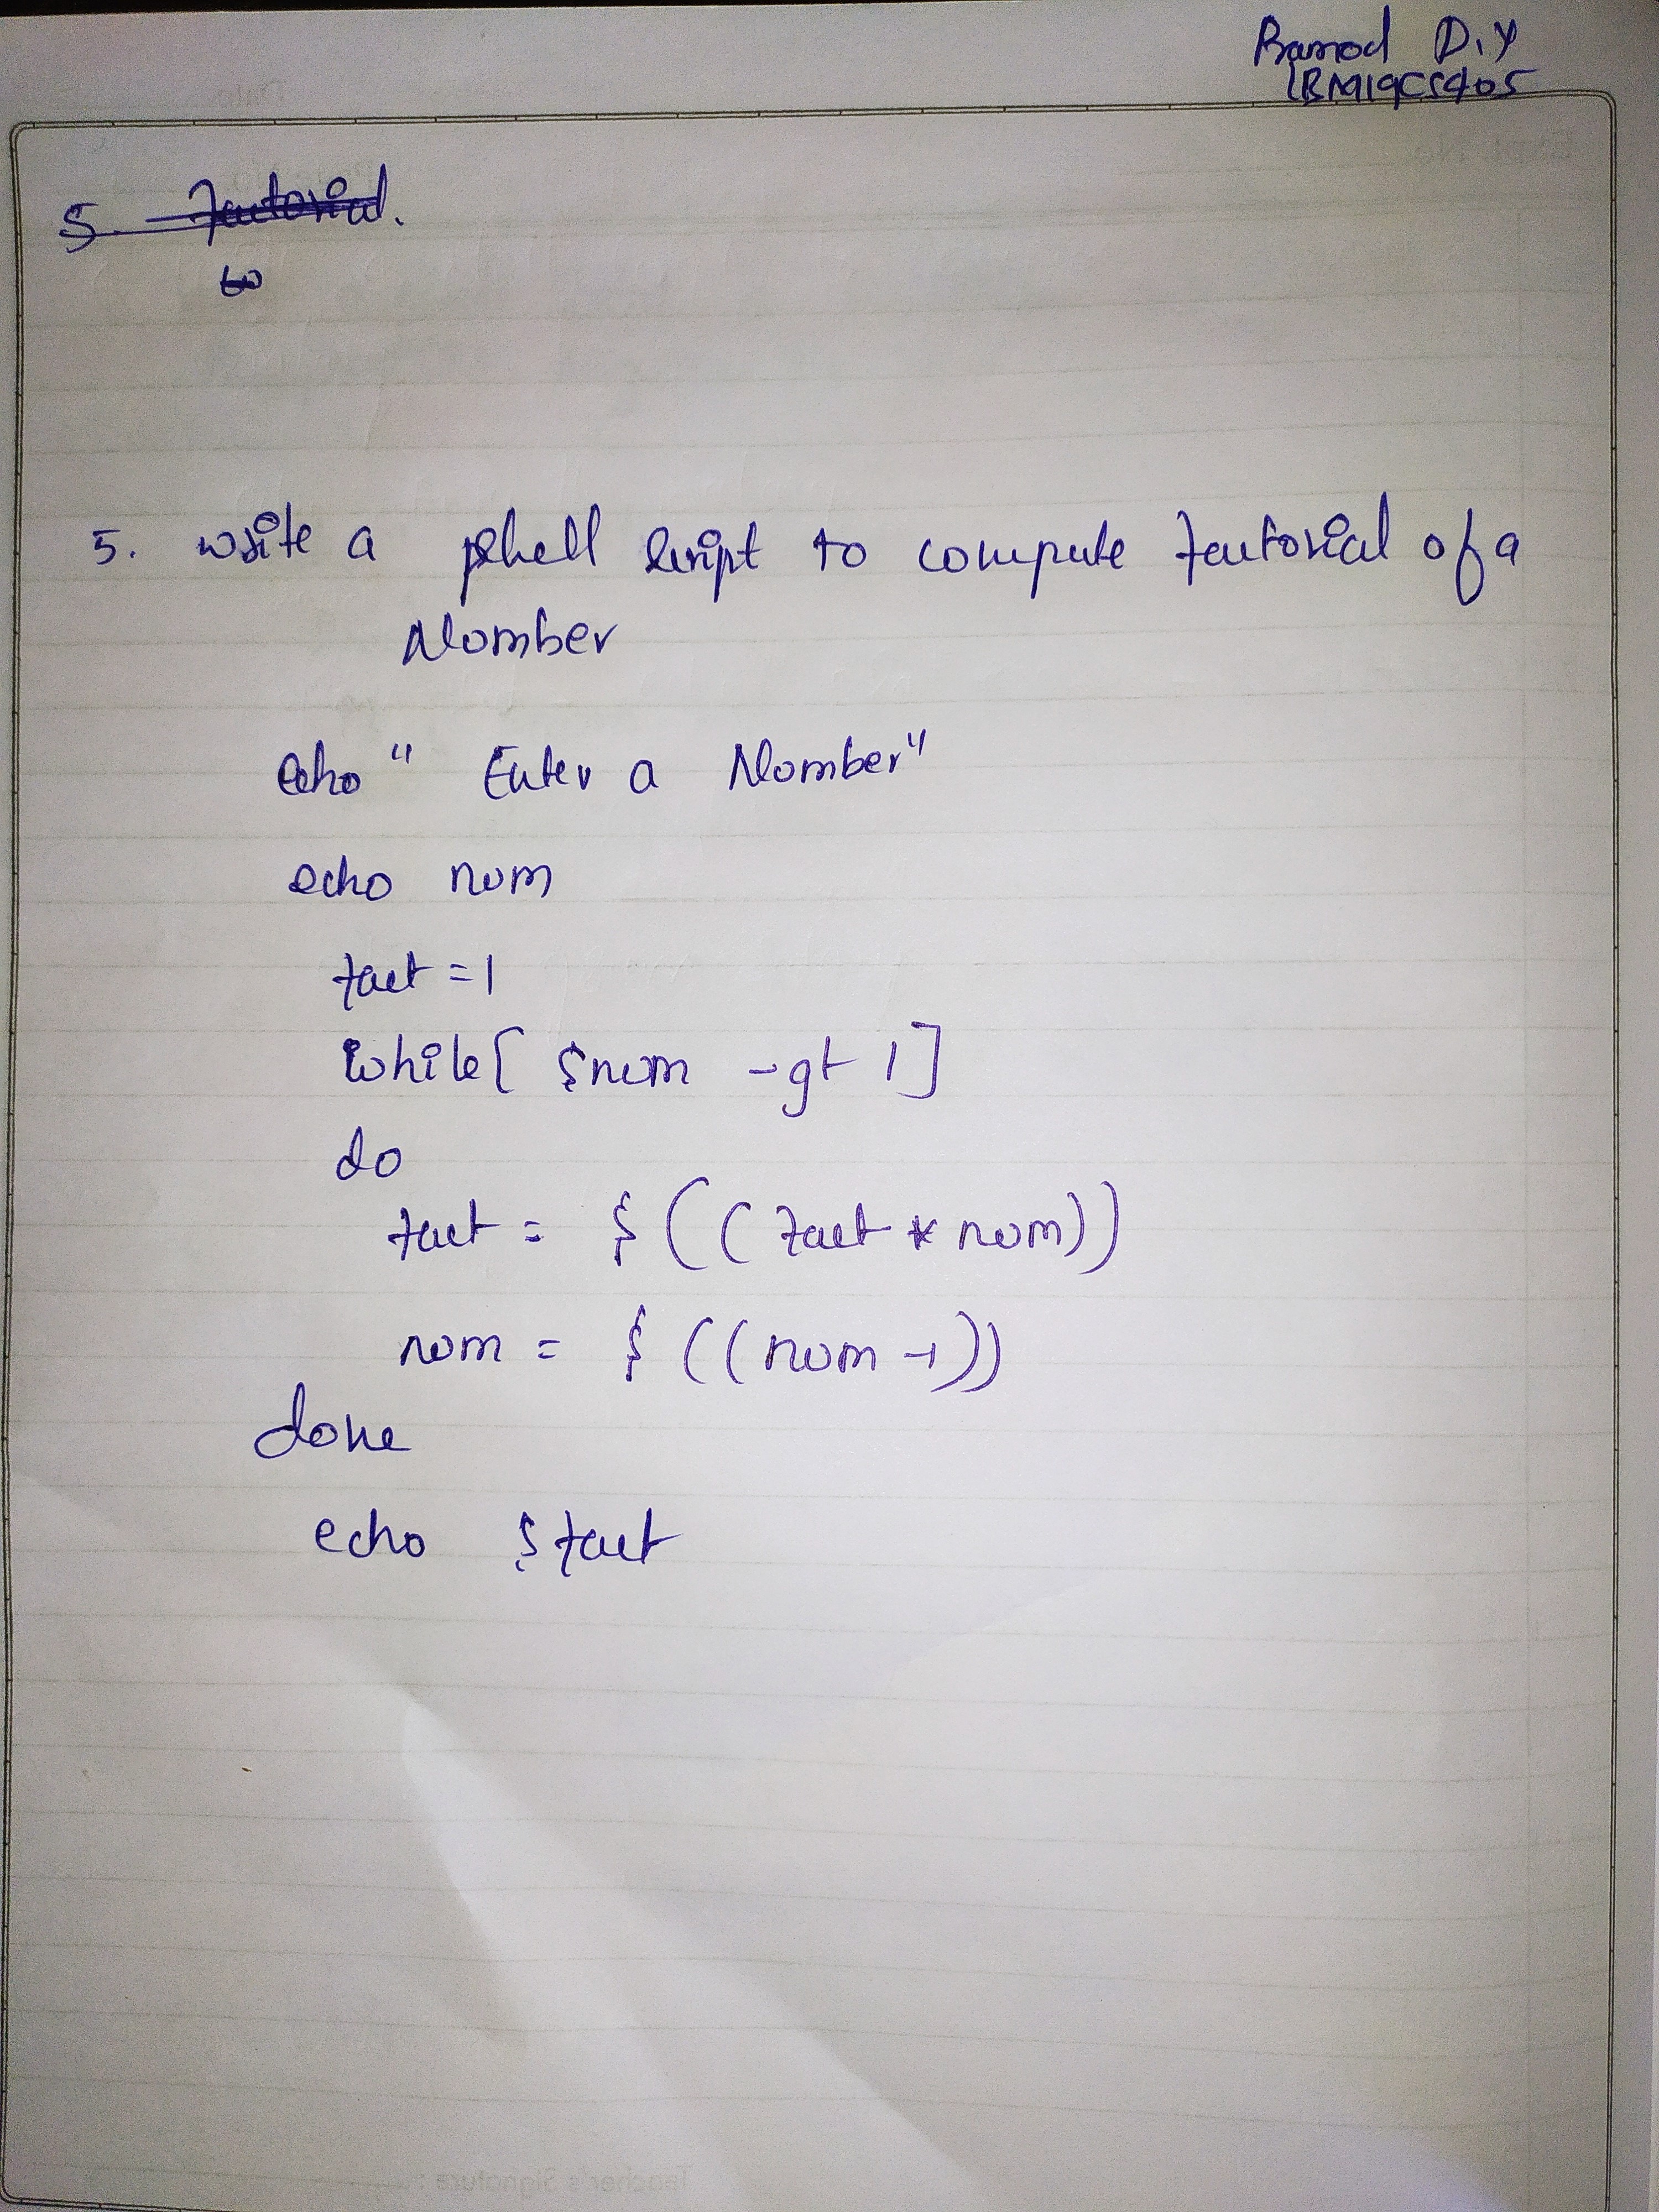 Pramod D.Y
1BM19CS405
5. Factorial.
to
5. write a shell script to compute factorial of a
Number
echo " Enter a Number"
echo num
fact =1
while[ $num -gt 1]
do
fact = $((fact * num))
num = $((num -1))
done
echo $fact